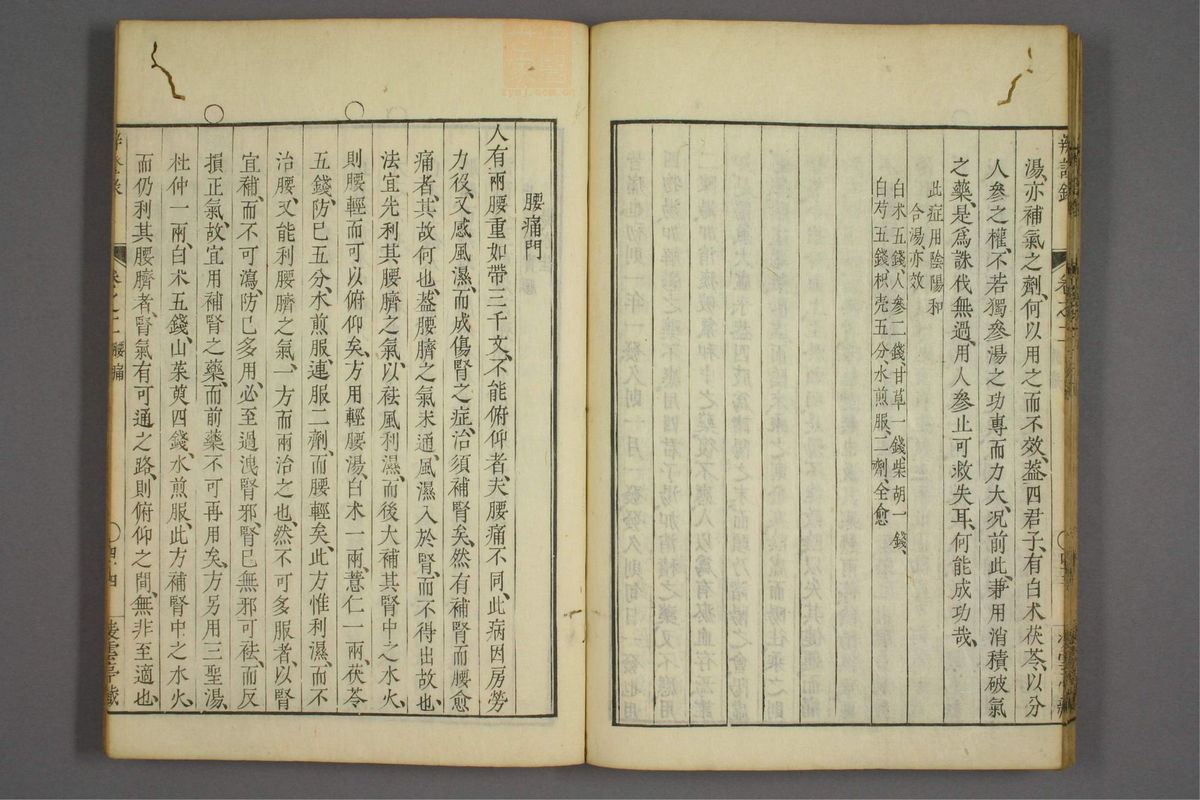 湯、亦補氣之劑、何以用之而不效、葢四君子、有白朮茯苓、以分
人參之權、不若獨參湯之功專而力大、况前此、兼用消積破氣
之藥、是爲誅伐無過、用人參止可救失耳、何能成功哉、
此症用陰陽和
合湯、亦效
白朮五錢、人參二錢甘草一錢柴胡一錢、
白芍五錢枳壳五分水煎服、二劑、全愈
辨證錄
卷之二
腰痛門
人有兩腰重如帶三千文、不能俯仰者、夫腰痛不同、此病因房勞
力役、又感風濕、而成傷腎之症、治須補腎矣、然有補腎而腰愈
痛者、其故何也、葢腰臍之氣未通、風濕入於腎、而不得出故也、
法宜先利其腰臍之氣、以祛風利濕、而後大補其腎中之水火、
則腰輕而可以俯仰矣、方用輕腰湯、白朮一兩、薏仁一兩、茯苓
五錢、防巳五分、水煎服、連服二劑、而腰輕矣、此方惟利濕、而不
治腰、又能利腰臍之氣、一方而兩治之也、然不可多服者、以腎
宜補、而不可瀉、防巳多用、必至過洩腎邪、腎巳無邪可祛、而反
損正氣、故宜用補腎之藥、而前藥不可再用矣、方另用三聖湯、
杜仲一兩、白朮五錢、山茱萸四錢、水煎服、此方補腎中之水火、
而仍利其腰臍者、腎氣有可通之路、則俯仰之間、無非至適也、
卷之二 腰痛
四十四